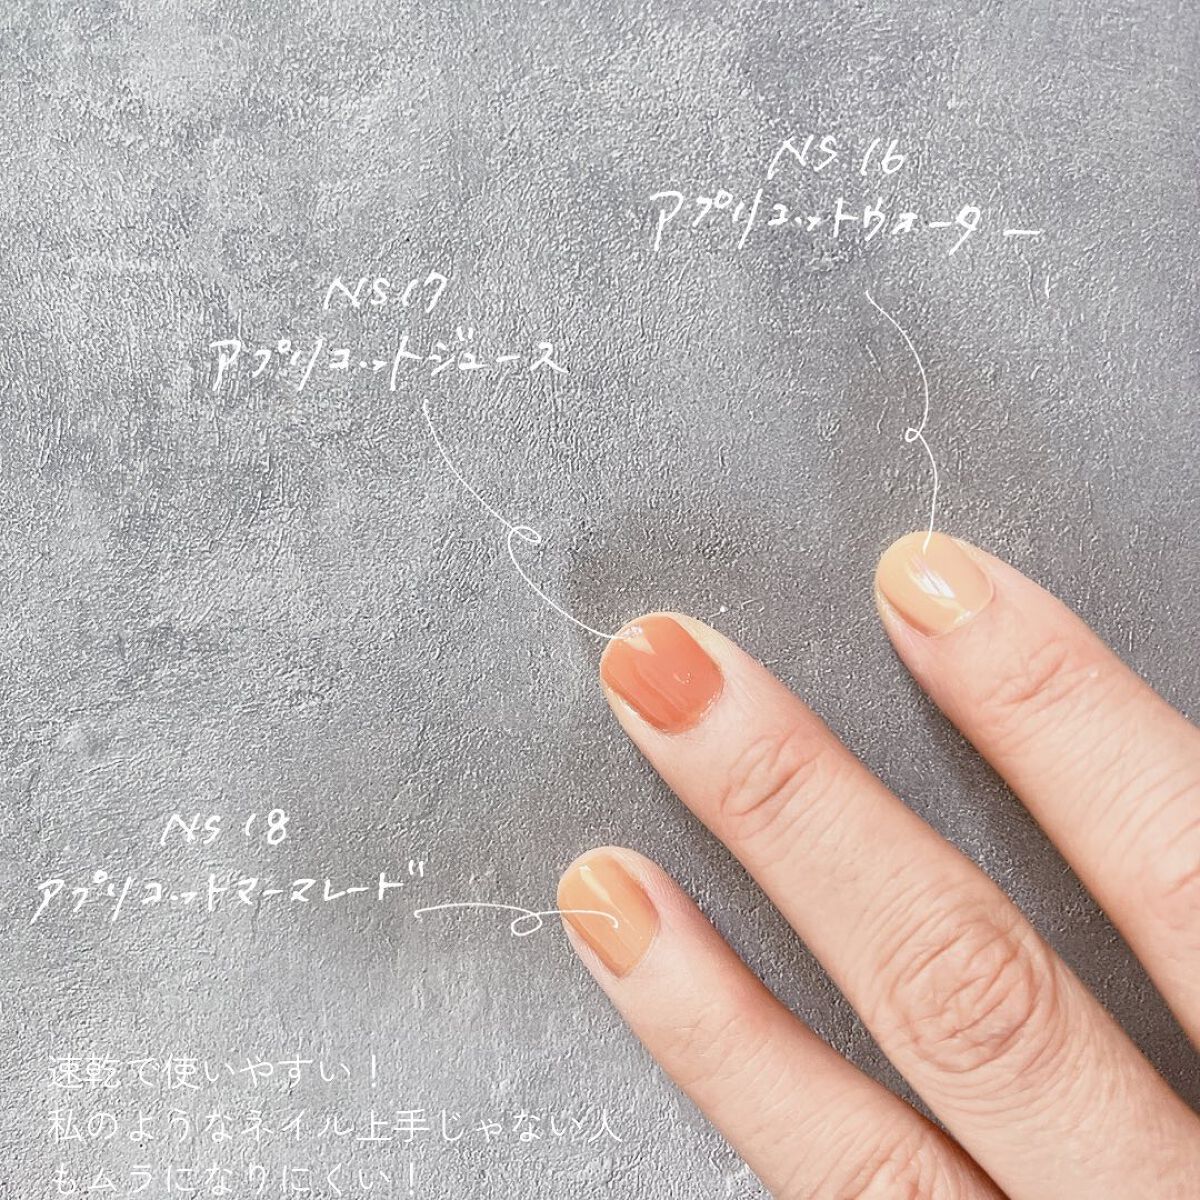 NS 16
アプリコットウォーター
NS 17
アプリコットジュース
NS 18
アプリコットマーマレード
速乾で使いやすい！
私のようなネイル上手じゃない人
もムラになりにくい！